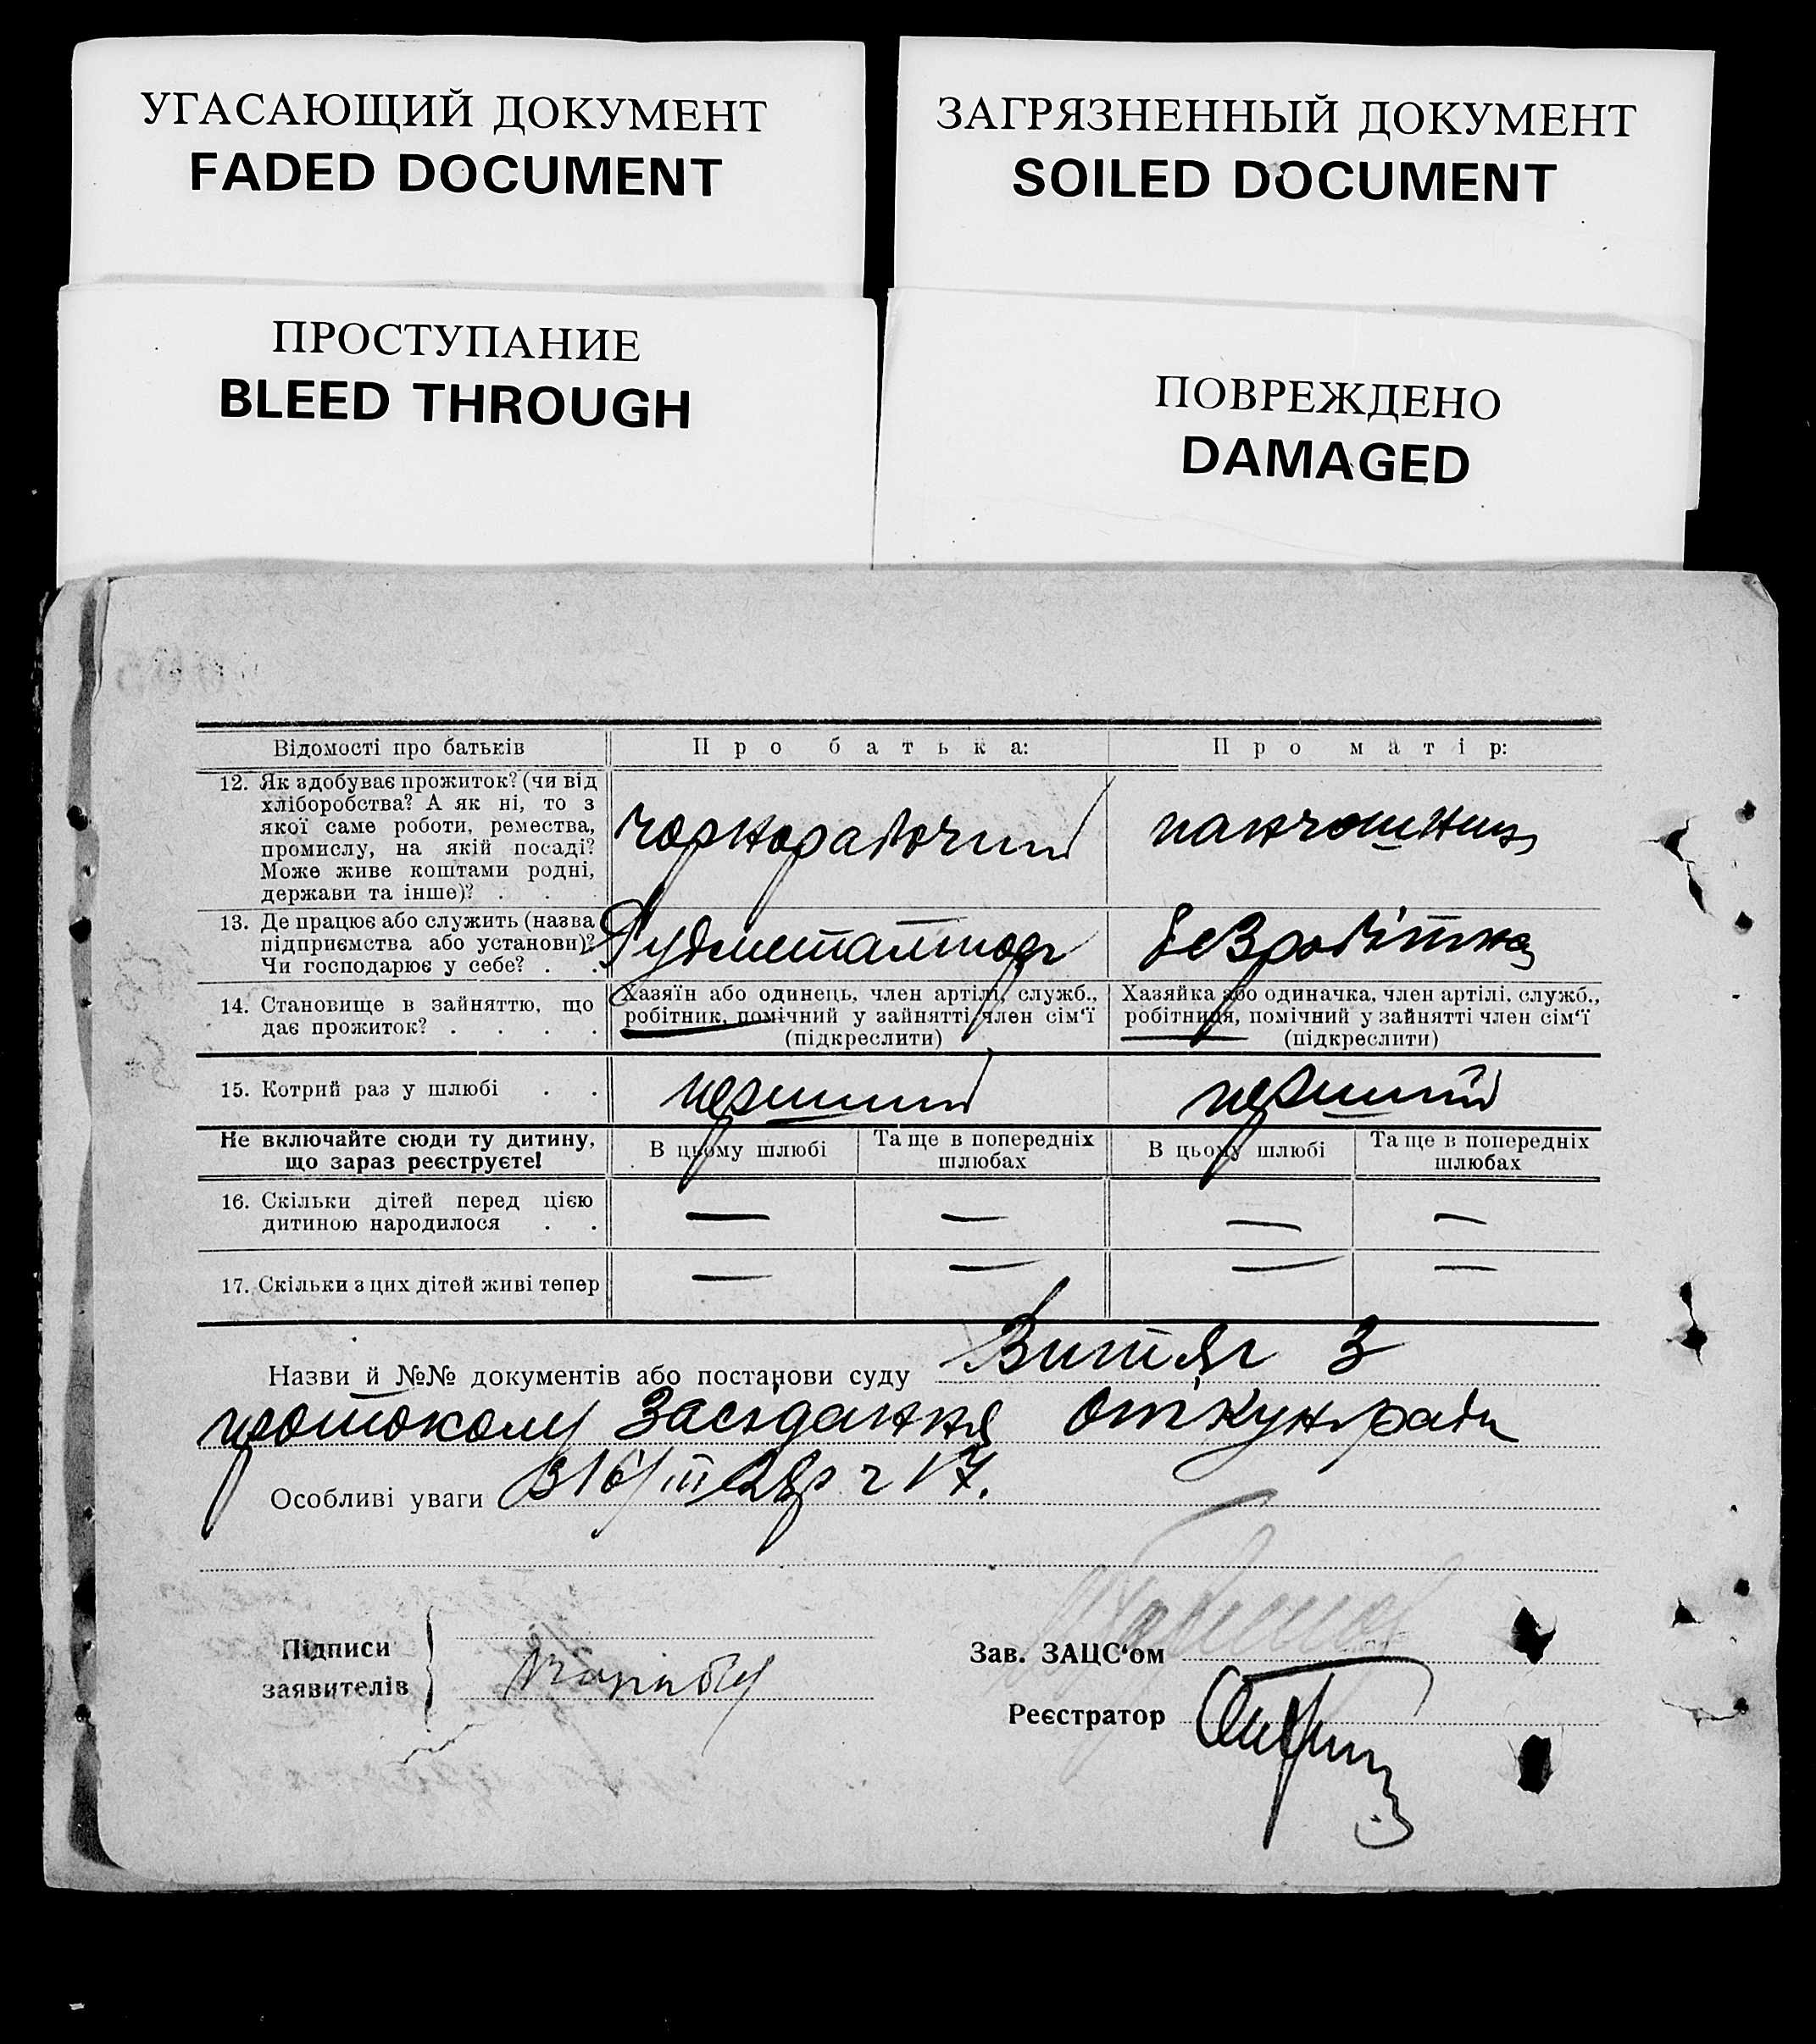 УГАСАЮЩИЙ ДОКУМЕНТ
FADED DOCUMENT
ЗАГРЯЗНЕННЫЙ ДОКУМЕНТ
SOILED DOCUMENT
ПРОСТУПАНИЕ
BLEED THROUGH
ПОВРЕЖДЕНО
DAMAGED
Відомості про батьків
Про батька:
Про матір:
12. Як здобуває прожиток? (чи від
хліборобства? А як ні, то з
якої саме роботи, ремества,
промислу, на якій посаді?
Може живе коштами родні,
держави та інше)? . .
чорнорабочий
панчошниця
13. Де працює або служить (назва
підприємства або установи)?
Чи господарює у себе? . .
Рудметалторг
безробітна
14. Становище в зайняттю, що
дає прожиток? . . . .
Хазяїн або одинець, член артілі, служб.,
робітник, помічний у зайнятті член сім‘ї
(підкреслити)
Хазяйка або одиначка, член артілі, служб.,
робітниця, помічний у зайнятті член сім‘ї
(підкреслити)
15. Котрий раз у шлюбі . .
перший
перший
Не включайте сюди ту дитину,
що зараз реєструєте!
В цьому шлюбі
Та ще в попередніх
шлюбах
В цьому шлюбі
Та ще в попередніх
шлюбах
16. Скільки дітей перед цією
дитиною народилося . .
— — — —
17. Скільки з цих дітей живі тепер
— — — —
Назви й №№ документів або постанови суду Витяг з
протоколу засідання
Особливі уваги з 16/III 28р ч 17.
Підписи
заявителів
Зав. ЗАЦС‘ом
Реєстратор